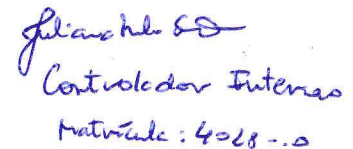 Juliano
Controlador Interno
Matrícula: 4028-.0